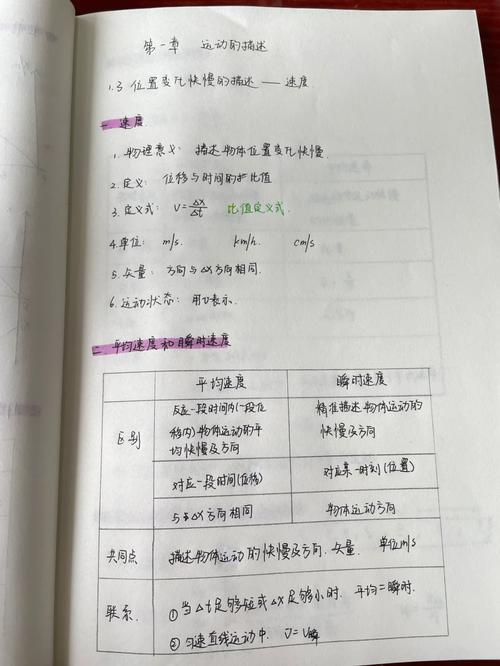 第一章 运动的描述
1.3 位置变化快慢的描述 —— 速度
一 速度
1. 物理意义: 描述物体位置变化快慢.
2. 定义: 位移与时间的比值
3. 定义式: V=Δx/Δt 比值定义式.
4. 单位: m/s. km/h. cm/s
5. 矢量: 方向与Δx方向相同.
6. 运动状态: 用v表示.
二 平均速度和瞬时速度
平均速度 瞬时速度
区别
反应一段时间内(一段位
移内)物体运动的平
均快慢及方向
精准描述物体运动的
快慢及方向
对应一段时间(位移) 对应某一时刻(位置)
与Δx方向相同 物体运动方向
共同点 描述物体运动的快慢及方向. 矢量. 单位m/s
联系. ① 当Δt足够短或Δx足够小时. 平均=瞬时.
② 匀速直线运动中. V̄=V瞬